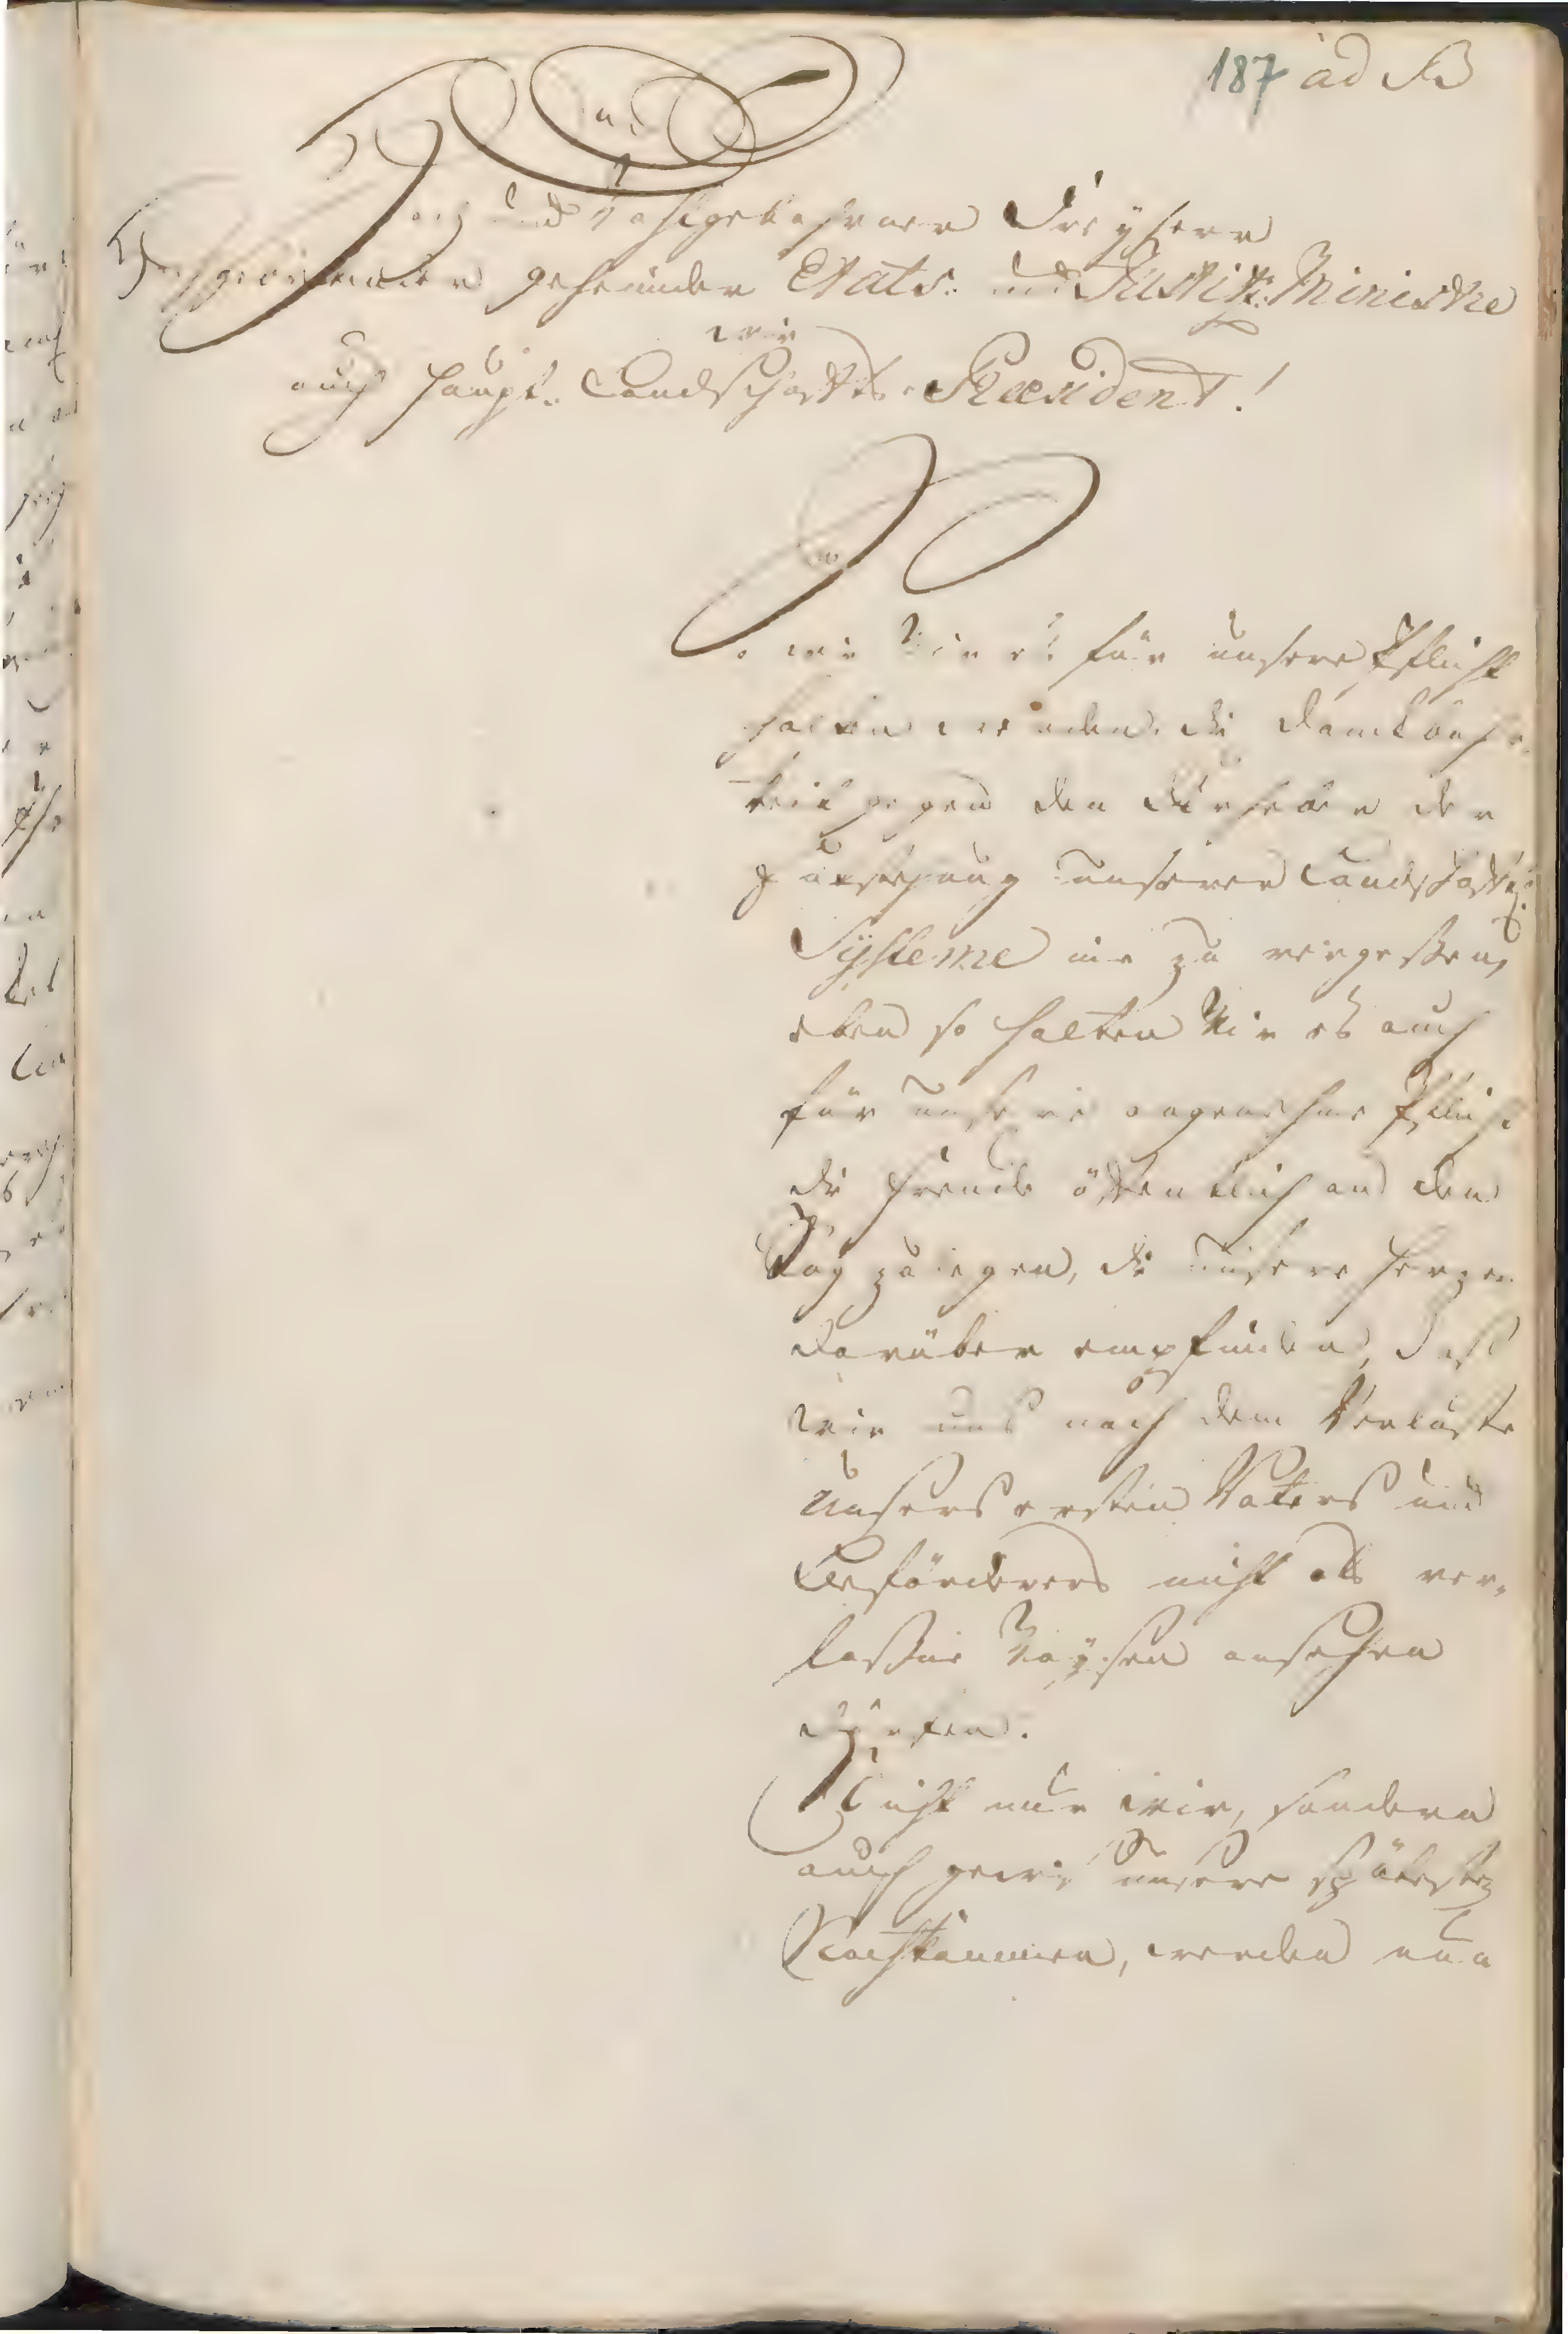 187 ad B
Hoch und Wohlgebohrner Freyherr
Hochgebietender geheimder Etats- und Justitz-Ministre
wie
auch Haupt-Landschafts-Præsident!
So wie Wir es für unsere Pflicht
halten werden, die Danckbahr-
keit gegen den Urheber der
unserer Landschafts
Systeme nie zu vergeßen,
eben so halten Wir es auch
für unsere angenehme Pflicht
die Freude öffentlich an den
Tag zu legen, die unsere Herzen
darüber empfinden, daß
wir uns nach dem Verluste
Unsers ersten Vaters und
Beförderers nicht als ver-
laßne Waysen ansehen
dürfen.
Nicht nur wir, sondern
auch gewis unsere spätesten
Nachkommen, werden nun